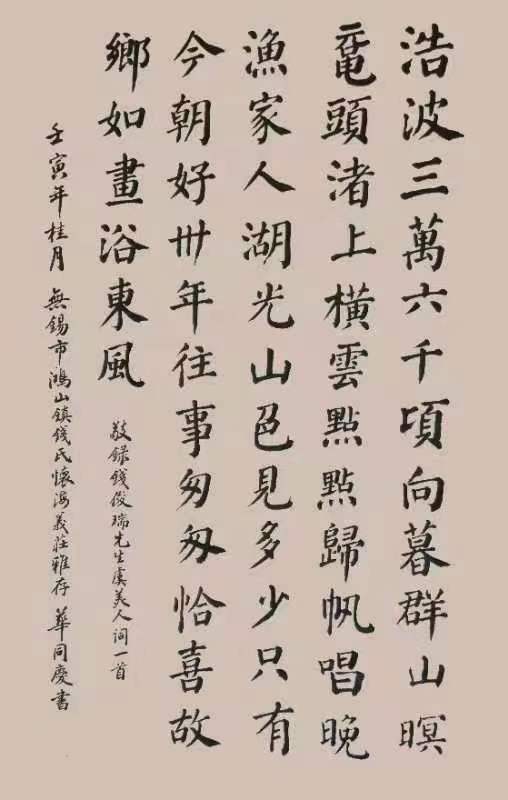 浩波三萬六千頃向暮群山暝
黿頭渚上橫雲點點歸帆唱晚
漁家人湖光山色見多少只有
今朝好卅年往事匆匆恰喜故
鄉如畫浴東風
敬錄錢俊瑞先生虞美人詞一首
壬寅年桂月 無錫市鴻山鎮錢氏懷海義莊雅存 華同慶書